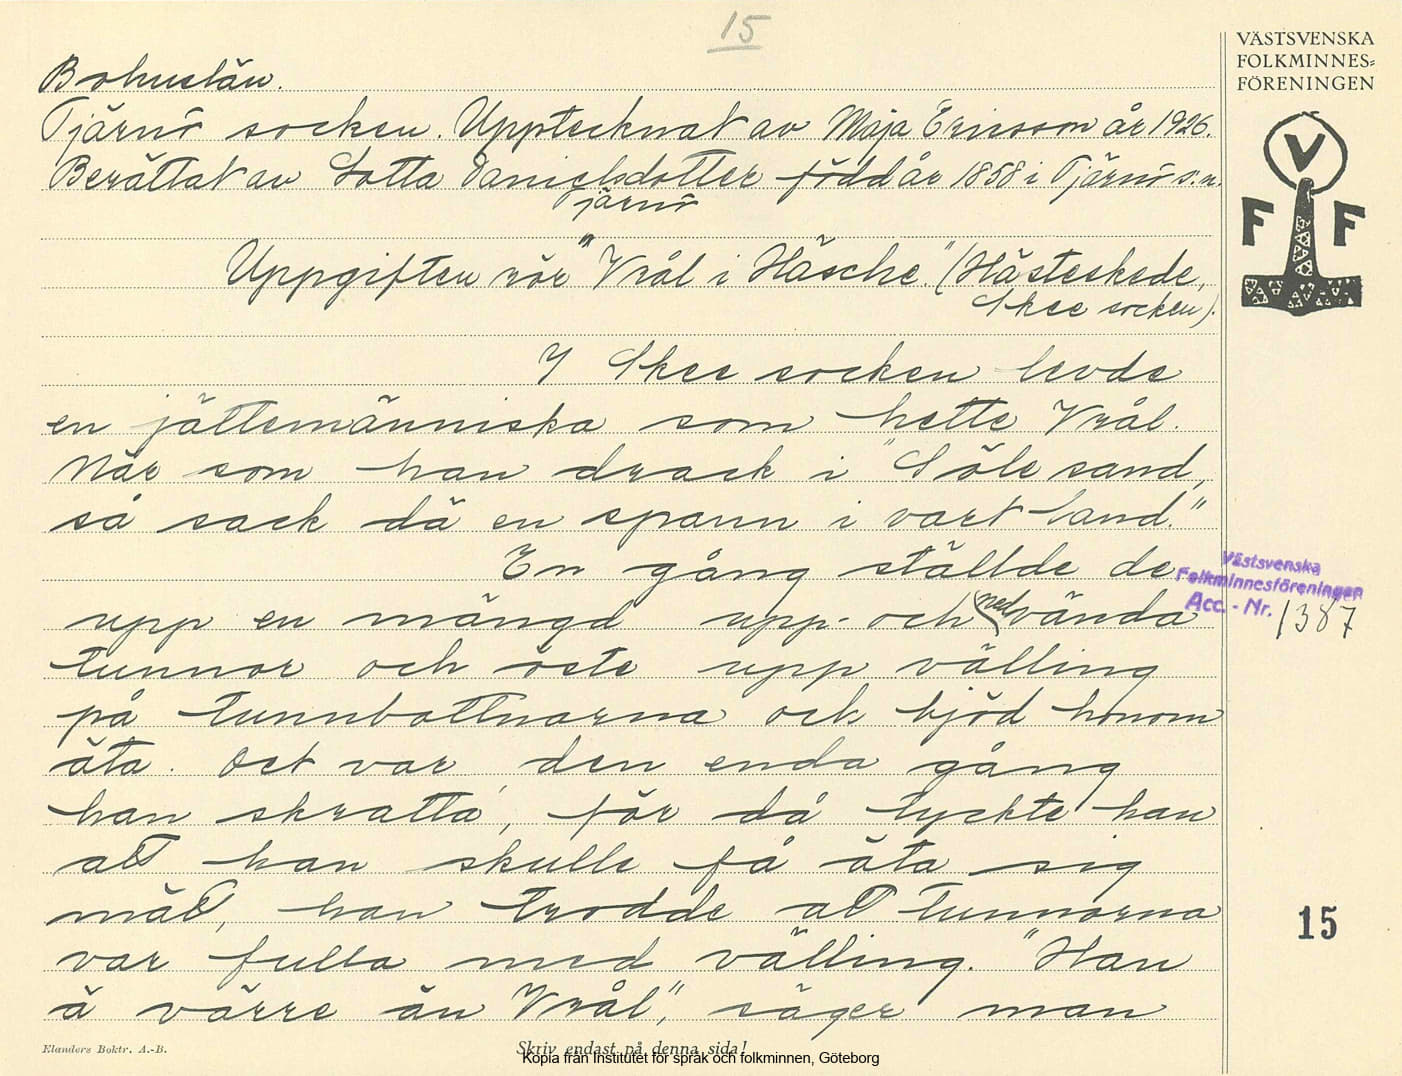 15
VÄSTSVENSKA
FOLKMINNES=
FÖRENINGEN
V
F F
Bohuslän.
Tjärnö socken. Upptecknat av Maja Ericsson år 1926.
Berättat av Lotta Danielsdotter född år 1858 i Tjärnö s.n.
Tjärnö
Uppgiften rör "Vrål i Häsche." (Hästeskede,
Skee socken).
I Skee socken levde
en jättemänniska som hette Vrål.
När som han drack i "Söle sand,
så sack dä en spann i vart land."
En gång ställde de
upp en mängd upp- och (ned)vända
tunnor och öste upp välling
på tunnbottnarna och bjöd honom
äta. Det var den enda gång
han skratta', för då tyckte han
att han skulle få äta sig
mätt, han trodde att tunnorna
var fulla med välling. "Han
ä värre än Vrål," säger man
Västsvenska
Folkminnesföreningen
Acc. - Nr. 1387
15
Elanders Boktr. A.-B.
Skriv endast på denna sida!
Kopia från Institutet för språk och folkminnen, Göteborg